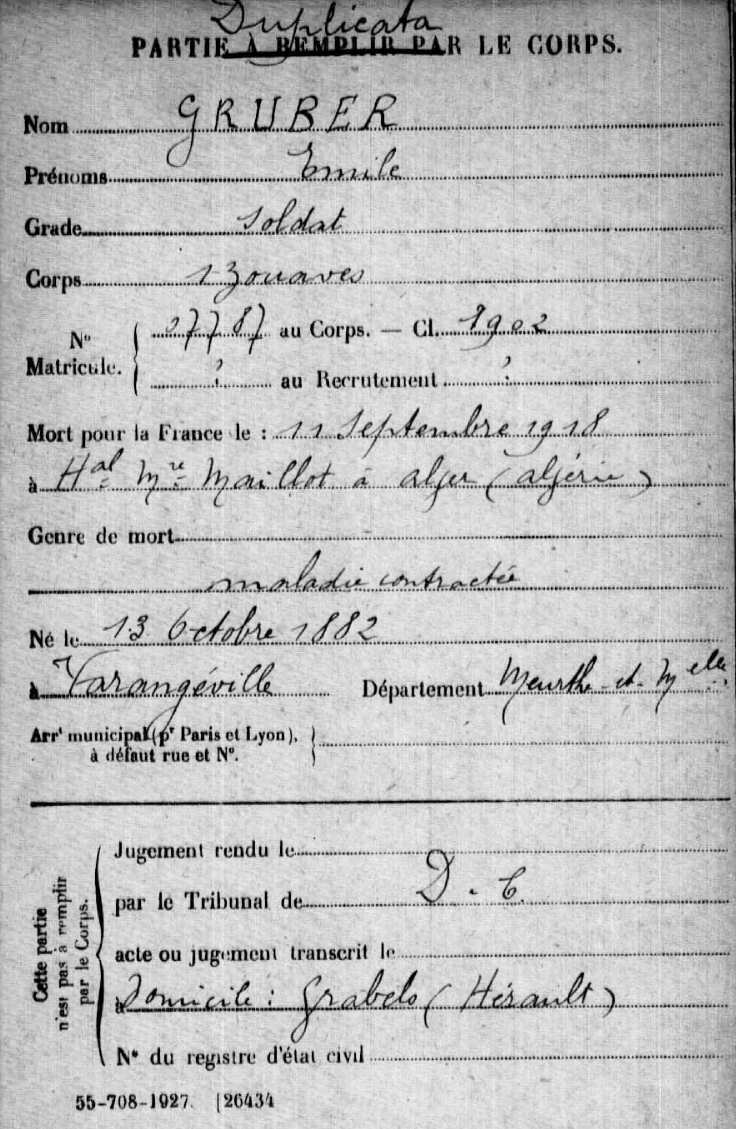 Duplicata
PARTIE À REMPLIR PAR LE CORPS.
Nom GRUBER
Prénoms Emile
Grade Soldat
Corps 1 Zouaves
N° Matricule. { 27787 au Corps. — Cl. 1902
? au Recrutement ?
Mort pour la France le : 11 Septembre 1918
à Hal Mre Maillot à alger (algérie)
Genre de mort
maladie contractée
Né le 13 Octobre 1882
à Varangéville Département Meurthe-et-Melle
Arrt municipal (pr Paris et Lyon), à défaut rue et N°.
Cette partie n'est pas à remplir par le Corps.
Jugement rendu le
par le Tribunal de D. C.
acte ou jugement transcrit le
à Domicile : Grabels (Hérault)
N° du registre d'état civil
55-708-1927. [26434